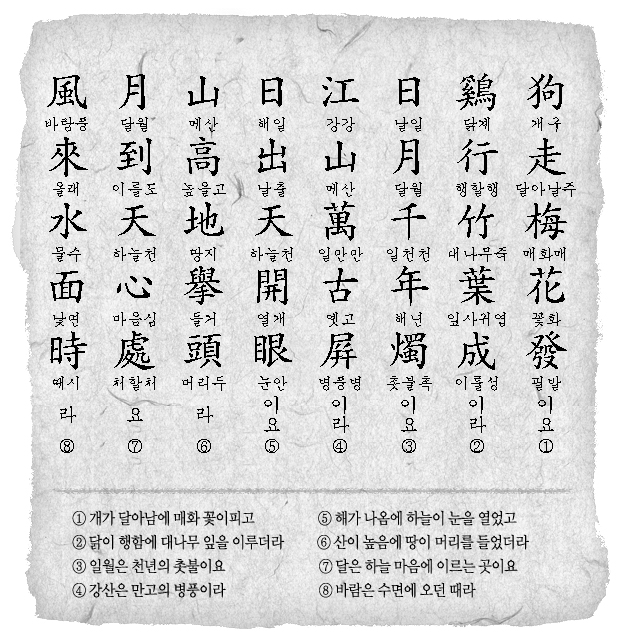 狗 개구 走 달아날주 梅 매화매 花 꽃화 發 필발 이요 ①
鷄 닭계 行 행할행 竹 대나무죽 葉 잎사귀엽 成 이룰성 이라 ②
日 날일 月 달월 千 일천천 年 해년 燭 촛불촉 이요 ③
江 강강 山 메산 萬 일만만 古 옛고 屛 병풍병 이라 ④
日 해일 出 날출 天 하늘천 開 열개 眼 눈안 이요 ⑤
山 메산 高 높을고 地 땅지 擧 들거 頭 머리두 라 ⑥
月 달월 到 이를도 天 하늘천 心 마음심 處 처할처 요 ⑦
風 바람풍 來 올래 水 물수 面 낯면 時 때시 라 ⑧
① 개가 달아남에 매화 꽃이피고
② 닭이 행함에 대나무 잎을 이루더라
③ 일월은 천년의 촛불이요
④ 강산은 만고의 병풍이라
⑤ 해가 나옴에 하늘이 눈을 열었고
⑥ 산이 높음에 땅이 머리를 들었더라
⑦ 달은 하늘 마음에 이르는 곳이요
⑧ 바람은 수면에 오던 때라